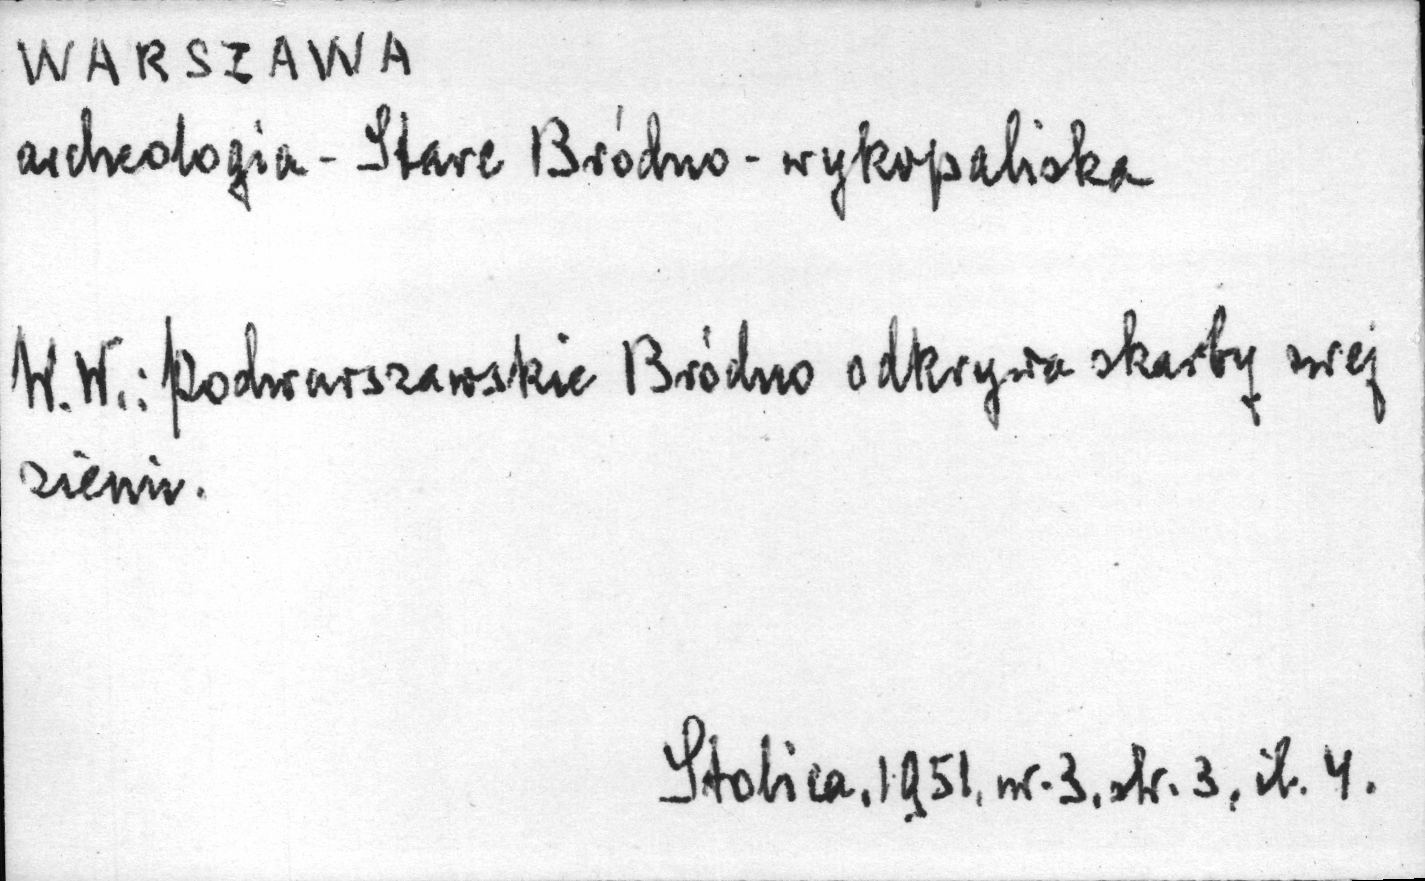 WARSZAWA
archeologia - Stare Bródno - wykopaliska
W.W.: Podwarszawskie Bródno odkrywa skarby swej
ziemi.
Stolica, 1951, nr. 3, str. 3, il. 4.